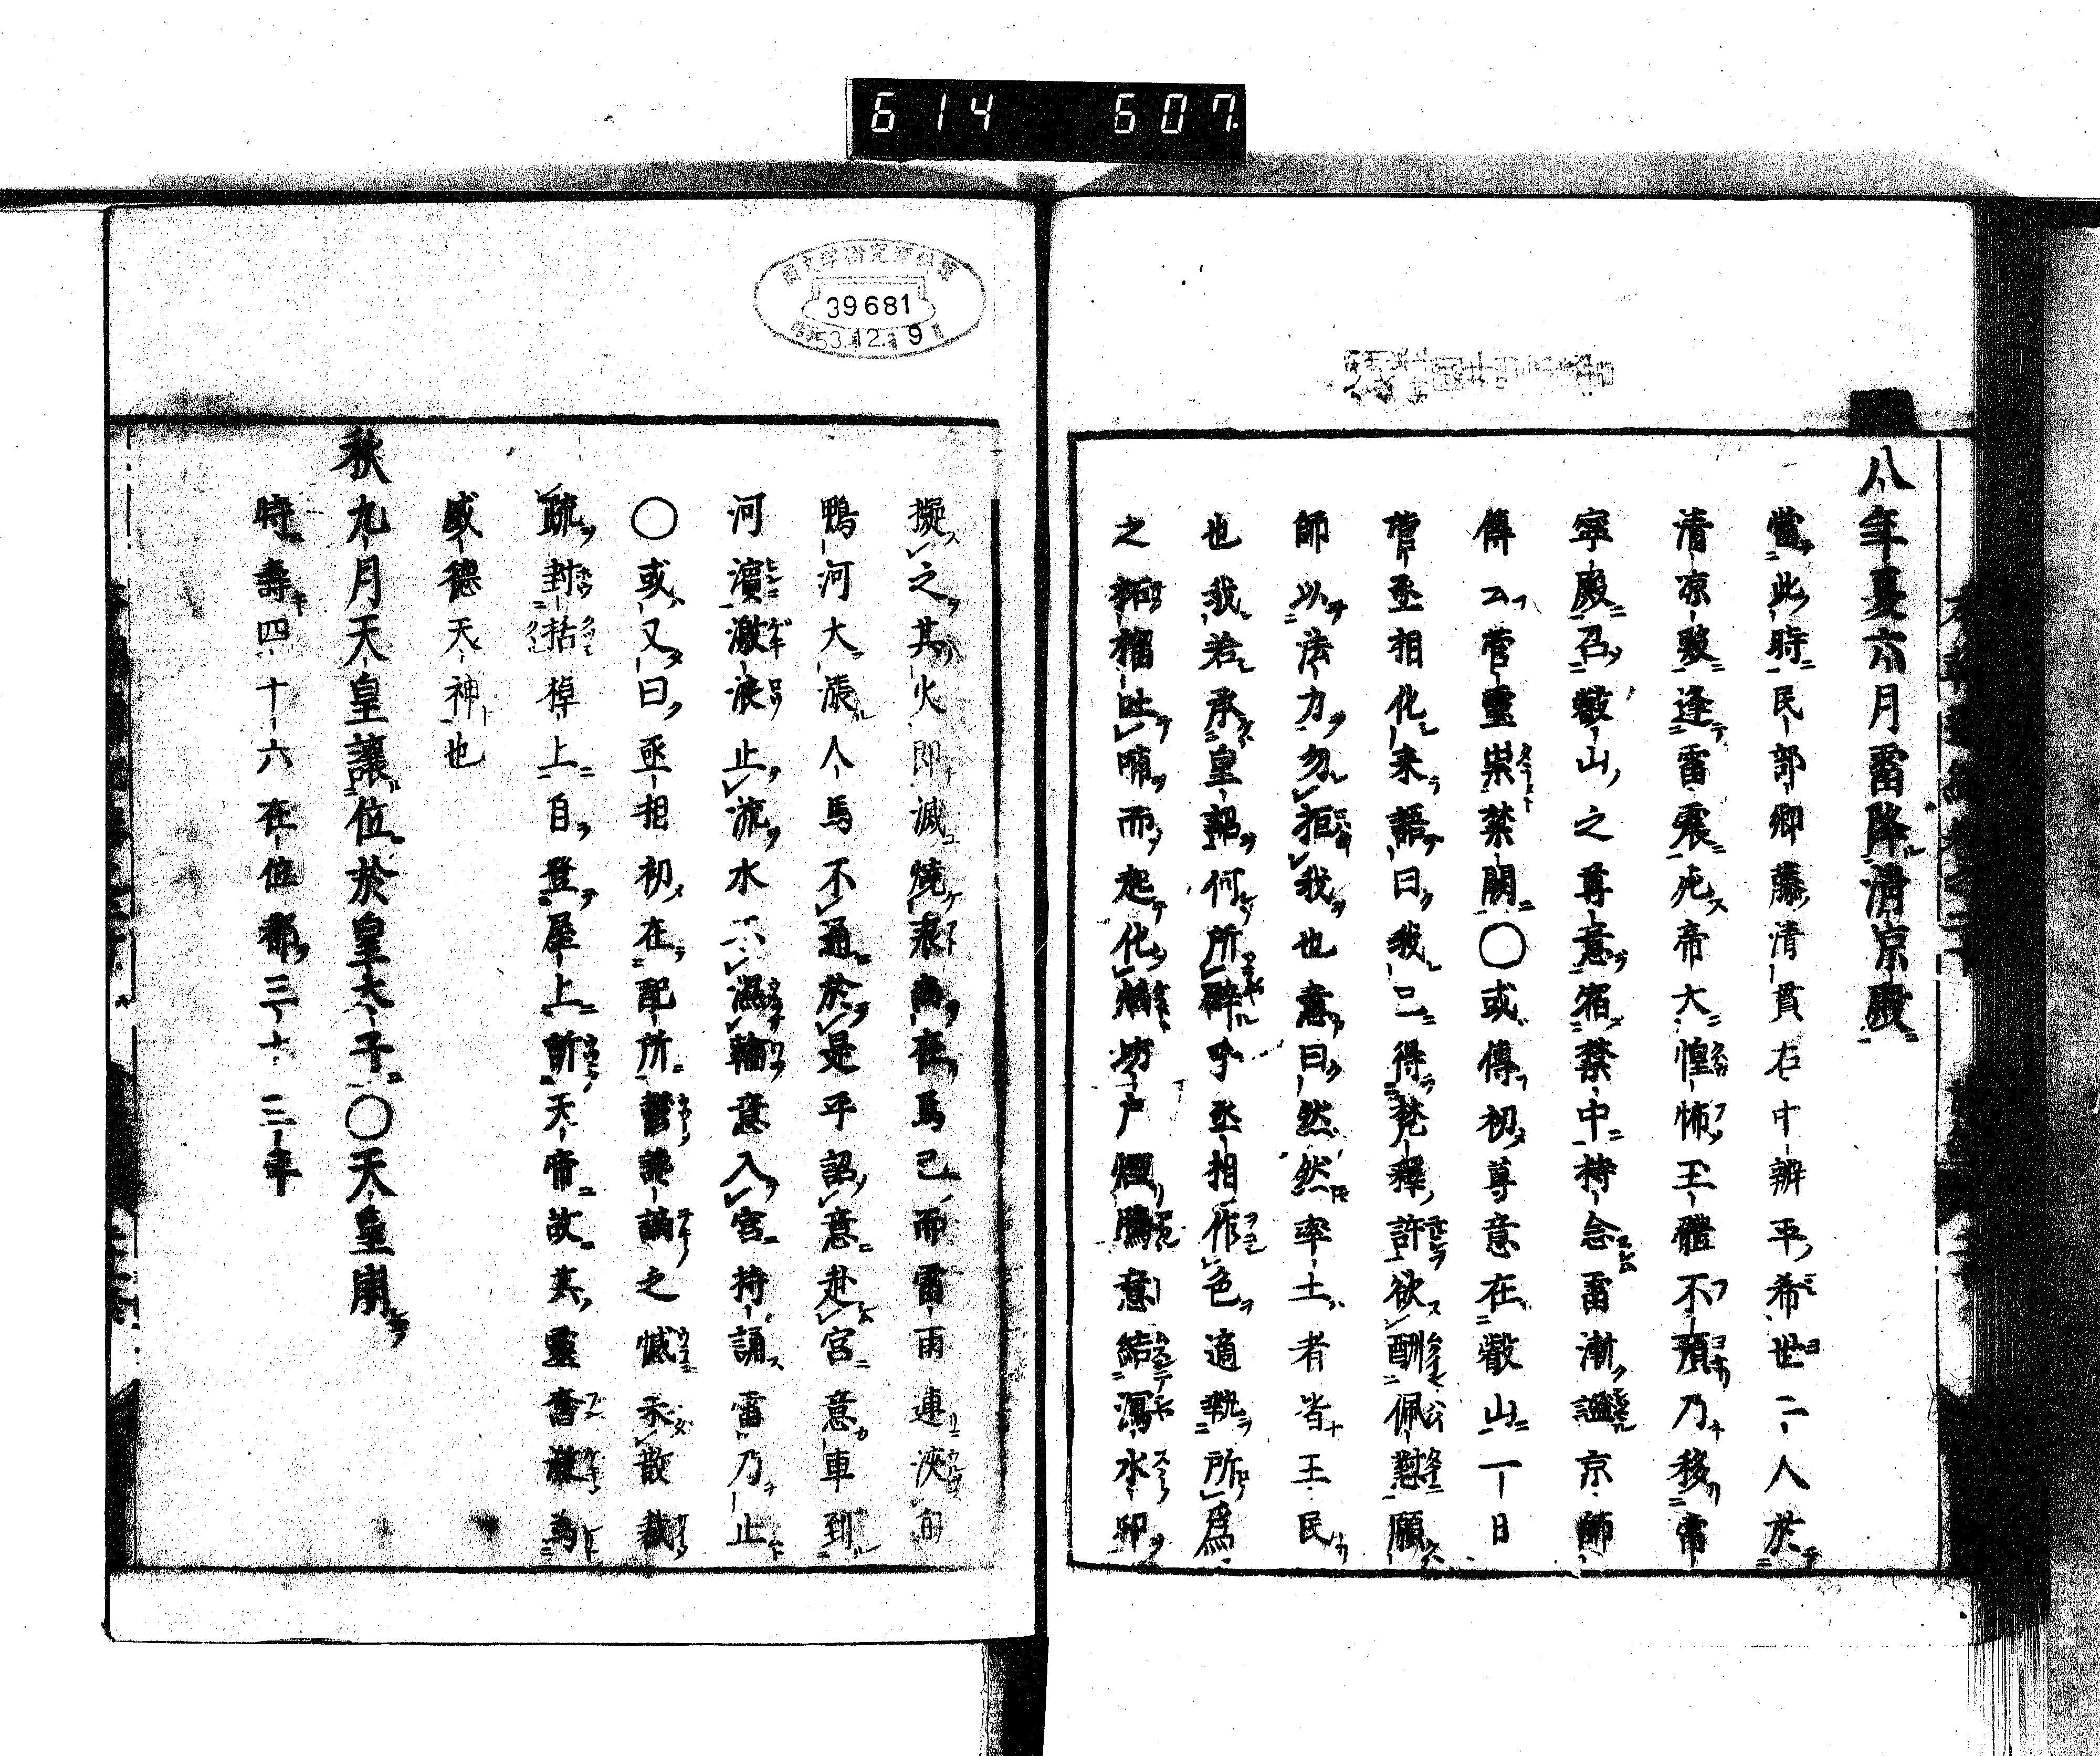 614 607.
八年夏六月雷降清凉殿
當此時民部卿藤清貫右中辨平希世二人於
清凉殿逢雷震死帝大惶怖王體不預乃移常
寧殿召叡山之尊意宿禁中持念雷漸謐京師
傳云菅靈祟禁闕〇或傳初尊意在叡山一日
菅丞相化來語曰我已得梵釋許欲酬佩懟願
師以法力勿拒我也意曰然然率土者皆王民
也我若承皇詔何所辭乎丞相作色適執所爲
之柘榴吐哺而起化焰坊戸煙騰意結瀉水印
擬之其火即滅燒痕尚在焉已而雷雨連浹旬
鴨河大漲人馬不通於是平詔意赴宮意車到
河濱激浪止流水不濕輪意入宮持誦雷乃止
〇或又曰丞相初在配所鬱讒謫之憾未散裁
疏封括棹上自登屋上訴天帝故其靈奮激爲
威德天神也
秋九月天皇讓位於皇太子〇天皇崩
時壽四十六在位都三十三年
39681
53.12.19